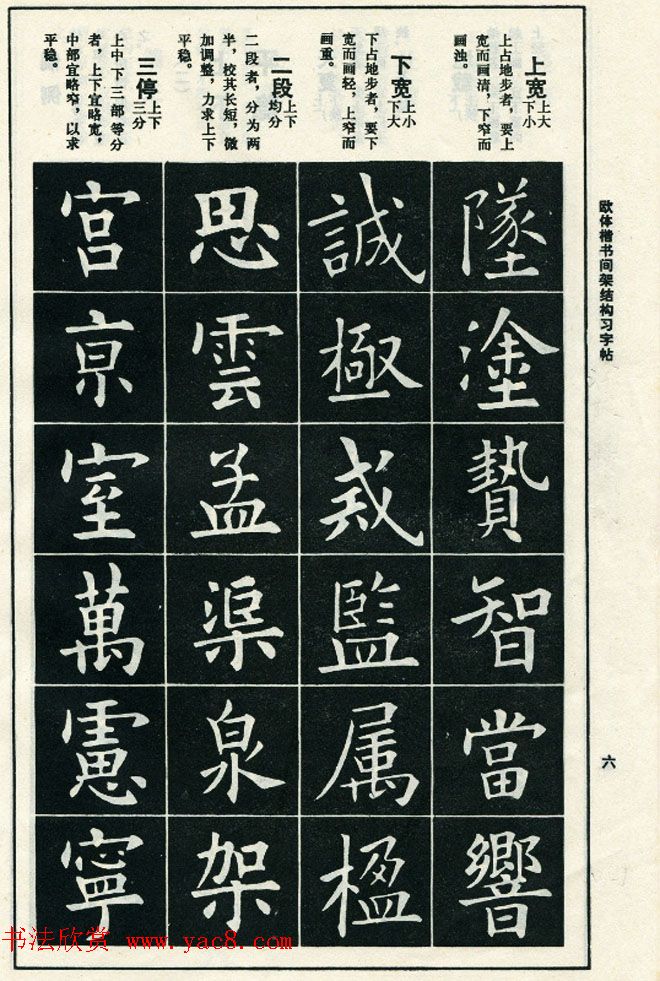 欧体楷书间架结构习字帖
六
上宽 上大下小
上占地步者，要上
宽而画清，下窄而
画浊。
墜塗贄智當響
下宽 上小下大
下占地步者，要下
宽而画轻，上窄而
画重。
誠極監属楹
二段 上下均分
二段者，分为两
半，校其长短，微
加调整，力求上下
平稳。
思雲孟渠泉架
三停 上下三分
上中下三部等分
者，上下宜略宽，
中部宜略窄，以求
平稳。
宫亰室萬寧
书法欣赏 www.yac8.com